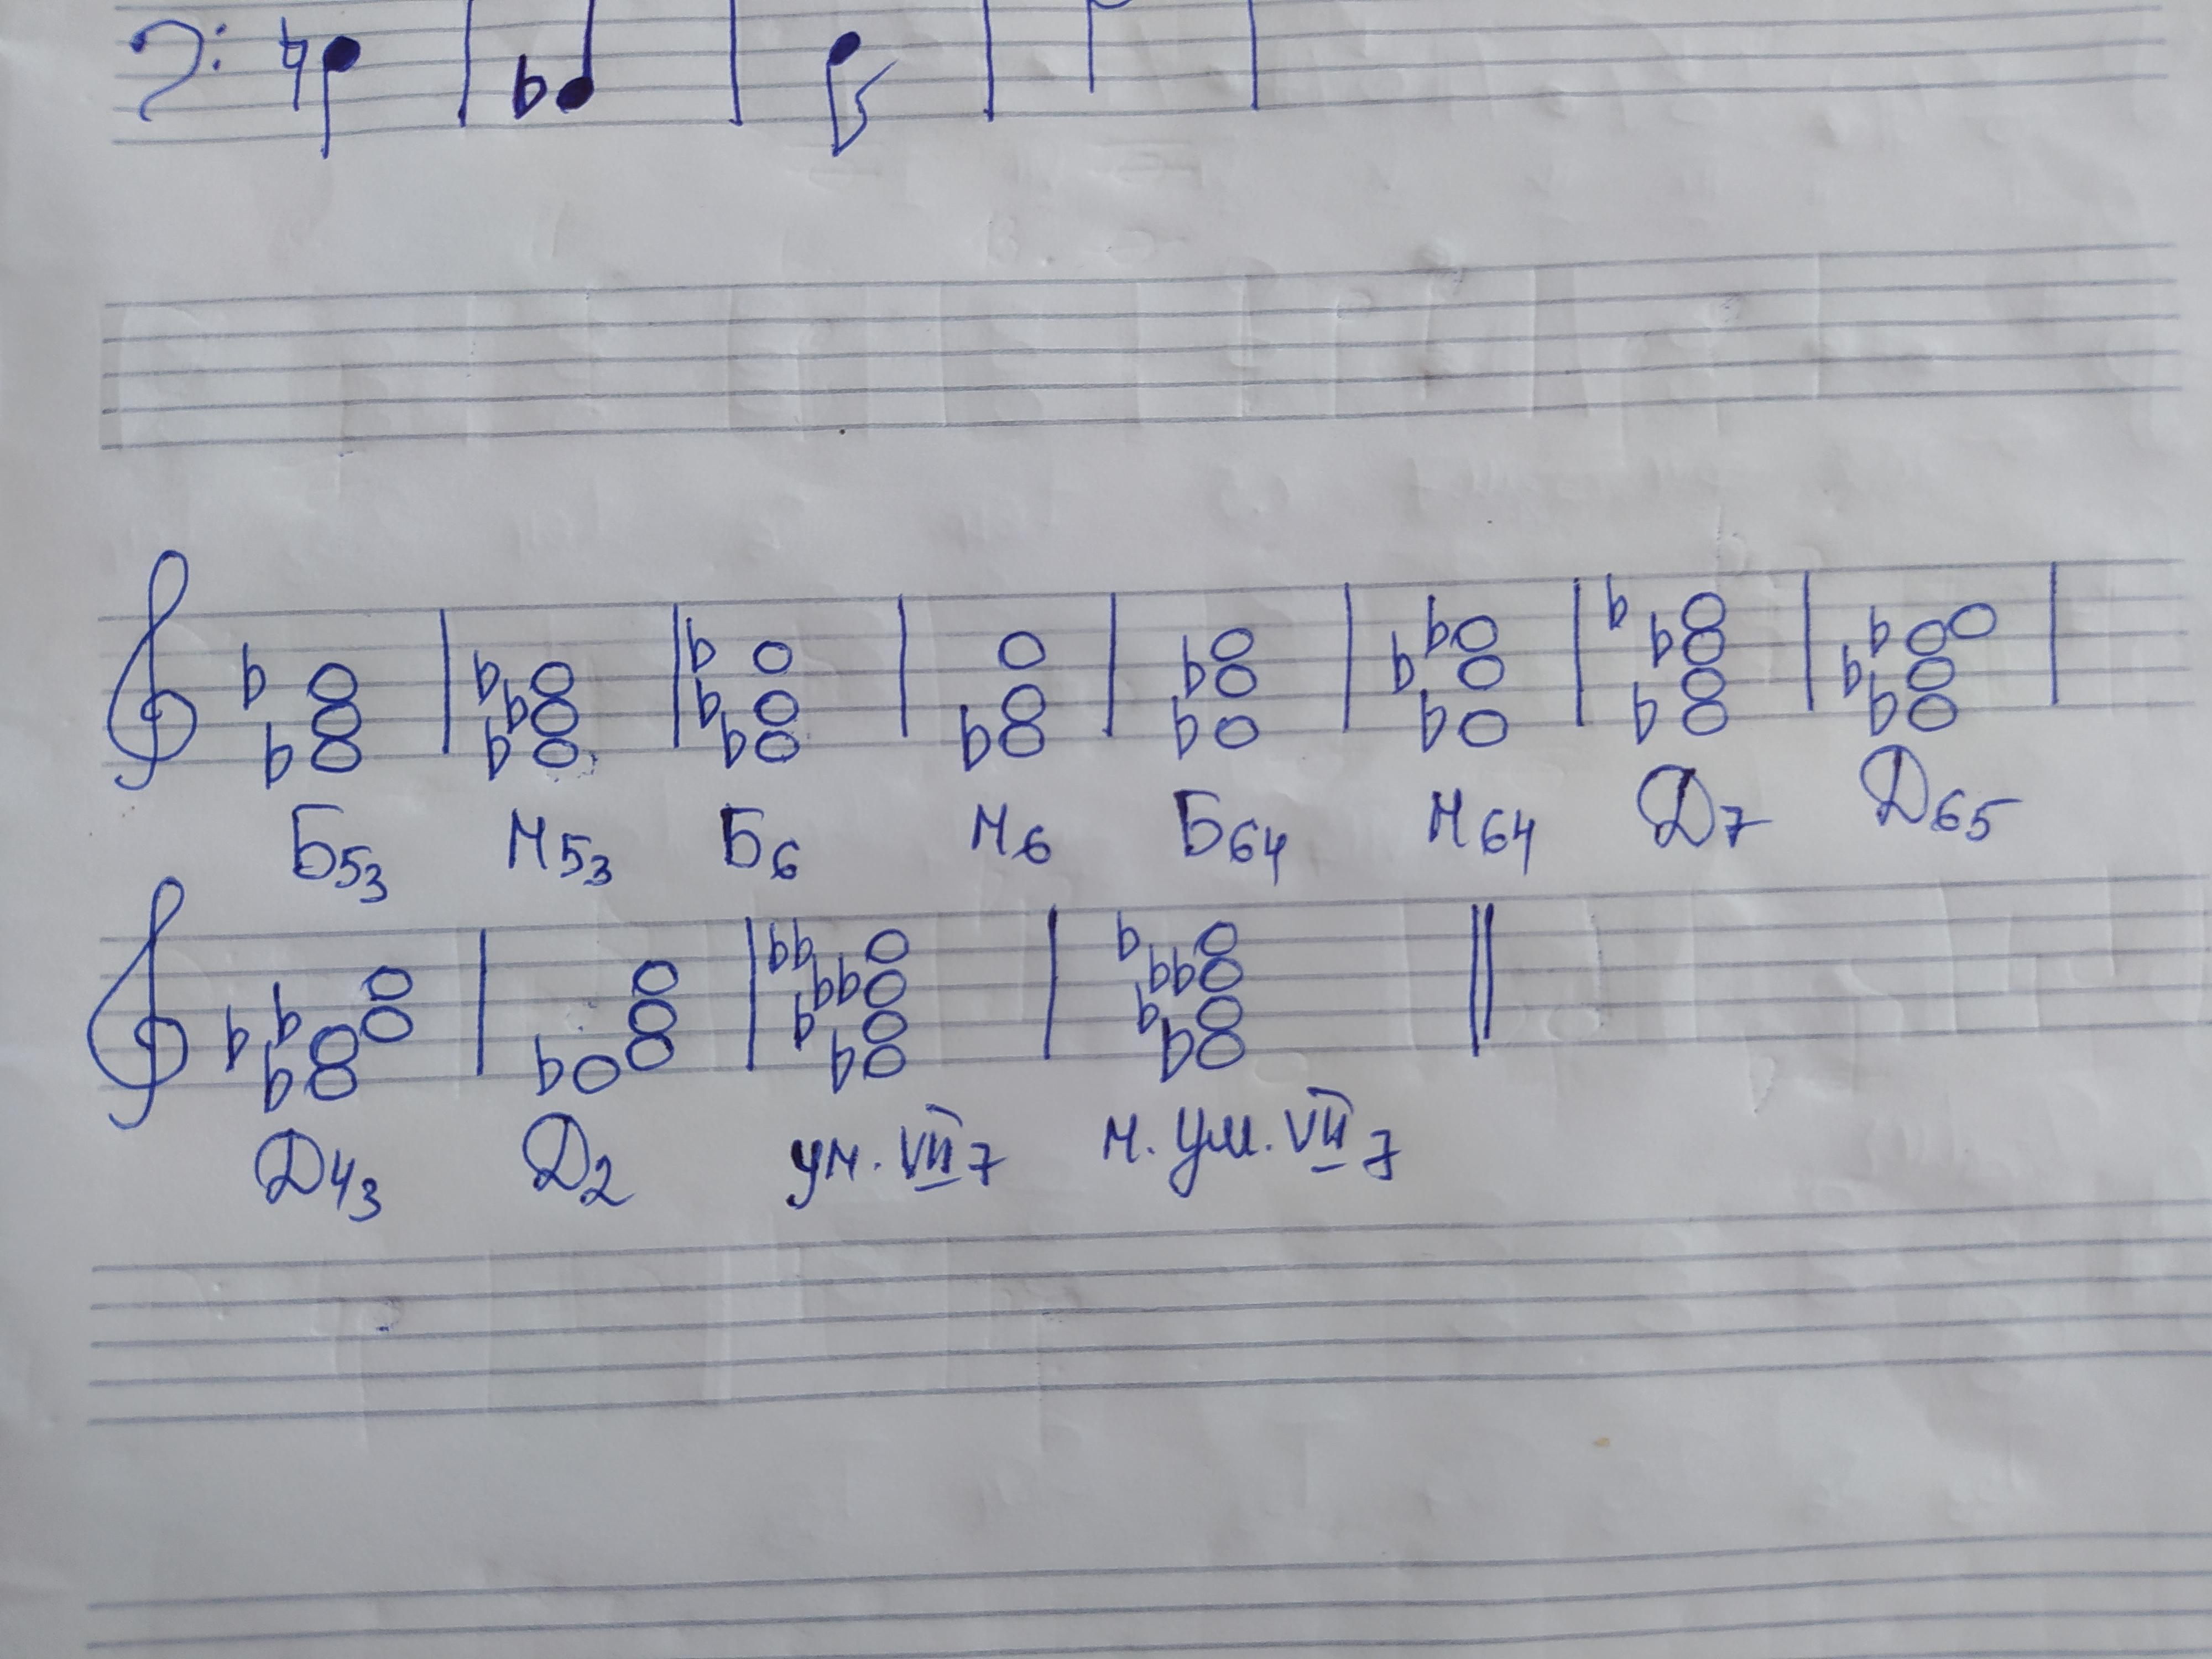 Б53 М53 Б6 М6 Б64 М64 Д7 Д65
Д43 Д2 ум. VII7 М. Ум. VII7